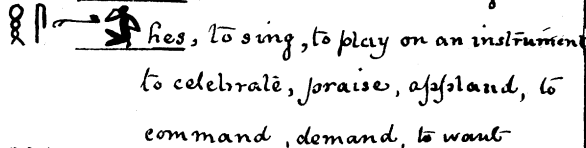 𓎛𓋴 hes, to sing, to play on an instrument
to celebrate, praise, applaud, to
command, demand, to want